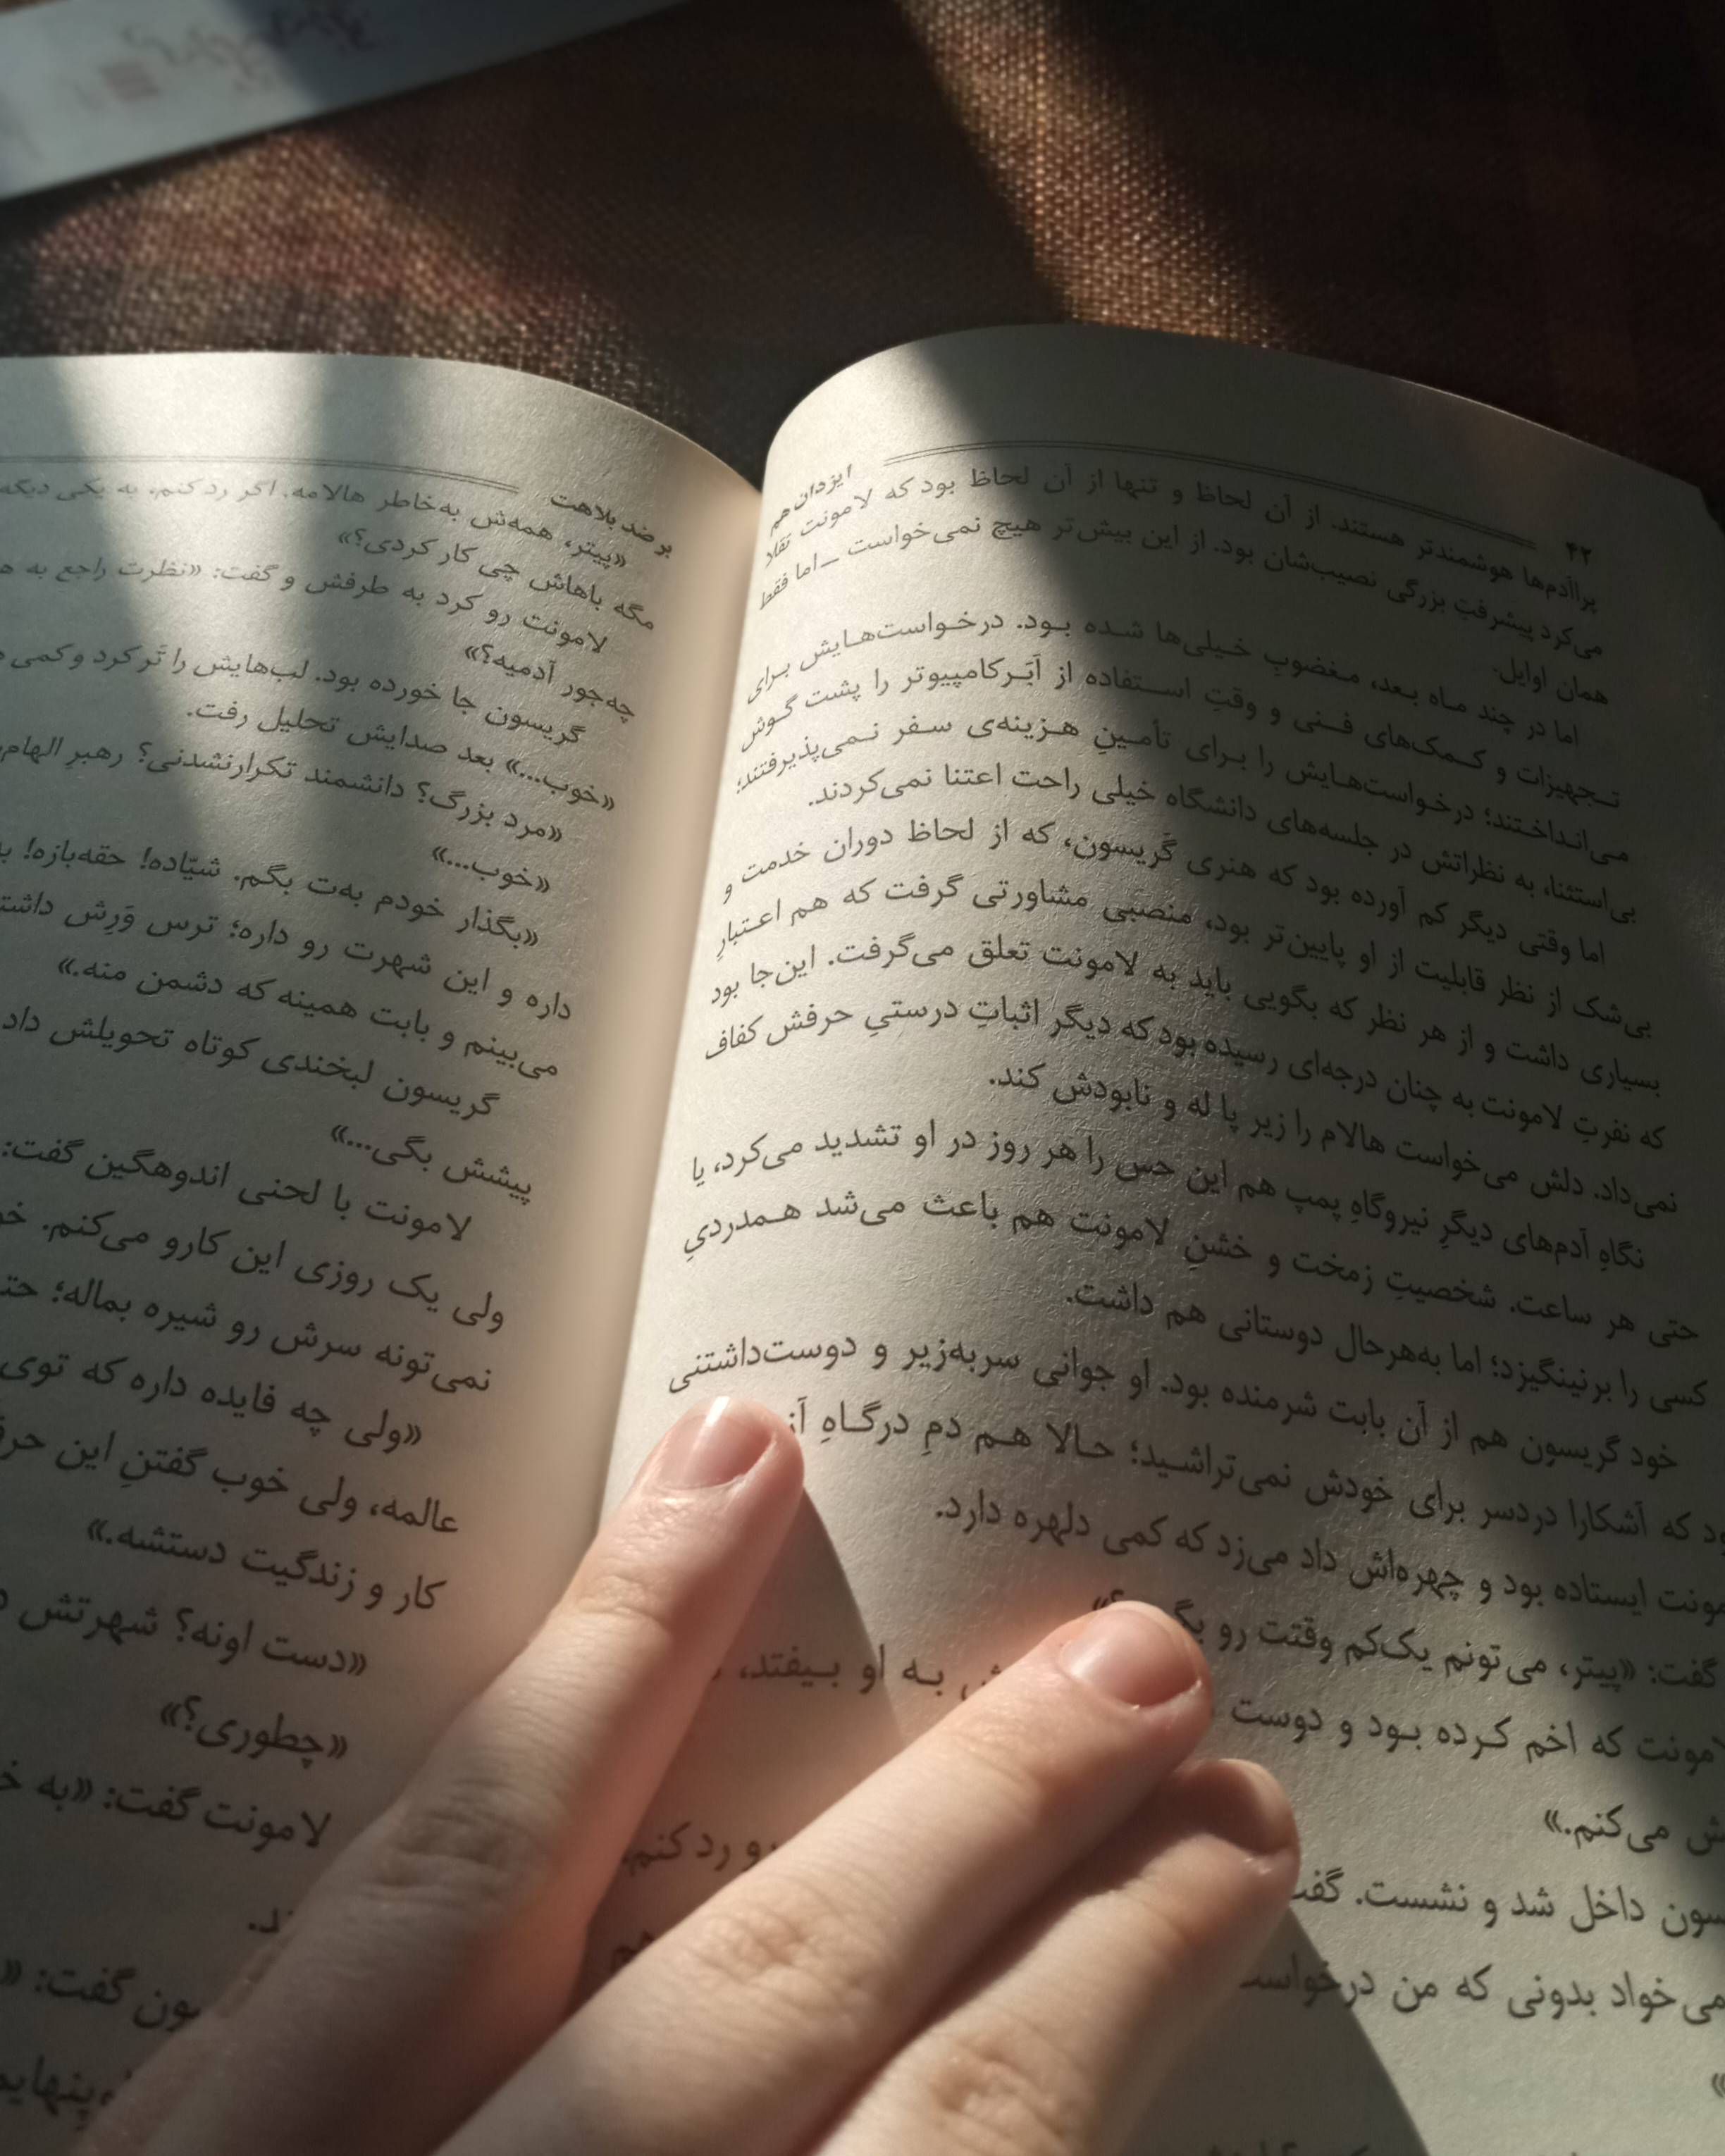 ۴۲
ایزدان هم
پراآدم‌ها هوشمندتر هستند. از آن لحاظ و تنها از آن لحاظ بود که لامونت تقلا
می‌کرد پیشرفتِ بزرگی نصیب‌شان بود. از این بیش‌تر هیچ نمی‌خواست — اما فقط
همان اوایل.
اما در چند ماه بعد، مغضوبِ خیلی‌ها شده بود. درخواست‌هایش برای
تجهیزات و کمک‌های فنی و وقتِ استفاده از اَبَرکامپیوتر را پشت گوش
می‌انداختند؛ درخواست‌هایش را برای تأمینِ هزینه‌ی سفر نمی‌پذیرفتند؛
بی‌استثنا، به نظراتش در جلسه‌های دانشگاه خیلی راحت اعتنا نمی‌کردند.
اما وقتی دیگر کم آورده بود که هنری گَریسون، که از لحاظ دوران خدمت و
بی‌شک از نظر قابلیت از او پایین‌تر بود، منصبی مشاورتی گرفت که هم اعتبارِ
بسیاری داشت و از هر نظر که بگویی باید به لامونت تعلق می‌گرفت. این‌جا بود
که نفرتِ لامونت به چنان درجه‌ای رسیده بود که دیگر اثباتِ درستیِ حرفش کفاف
نمی‌داد. دلش می‌خواست هالام را زیر پا له و نابودش کند.
نگاهِ آدم‌های دیگرِ نیروگاهِ پمپ هم این حس را هر روز در او تشدید می‌کرد، یا
حتی هر ساعت. شخصیتِ زمخت و خشنِ لامونت هم باعث می‌شد همدردیِ
کسی را برنینگیزد؛ اما به‌هرحال دوستانی هم داشت.
خود گریسون هم از آن بابت شرمنده بود. او جوانی سربه‌زیر و دوست‌داشتنی
که آشکارا دردسر برای خودش نمی‌تراشید؛ حالا هم دمِ درگاهِ
ایستاده بود و چهره‌اش داد می‌زد که کمی دلهره دارد.
گفت: «پیتر، می‌تونم یک‌کم وقتت رو
که اخم کرده بود و دوست به او بیفتد،
می‌کنم.»
داخل شد و نشست. رو رد کنم.
می‌خواد بدونی که من
بر ضد بلاهت
«پیتر، همه‌ش به‌خاطر هالامه. اگر رد کنم، به یکی دیگه
مگه باهاش چی کار کردی؟»
لامونت رو کرد به طرفش و گفت: «نظرت راجع به
چه‌جور آدمیه؟»
گریسون جا خورده بود. لب‌هایش را تَر کرد و کمی
«خوب...» بعد صدایش تحلیل رفت.
«مرد بزرگ؟ دانشمند تکرارنشدنی؟ رهبرِ
«خوب...»
«بگذار خودم به‌ت بگم. شیّاده! حقه‌بازه!
داره و این شهرت رو داره؛ ترس وَرِش
می‌بینم و بابت همینه که دشمن منه.»
گریسون لبخندی کوتاه تحویلش داد
پیشش بگی...»
لامونت با لحنی اندوهگین گفت:
ولی یک روزی این کارو می‌کنم.
نمی‌تونه سرش رو شیره بماله؛
«ولی چه فایده داره که توی
عالمه، ولی خوب گفتنِ این
کار و زندگیت دستشه.»
«دست اونه؟ شهرتش
«چطوری؟»
لامونت گفت: «به
گفت: «